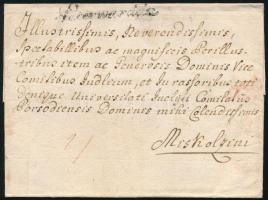 Illustrissimis, Reverendissimis,
Spectabilibus ac magnificis Perillus-
tribus item ac Generosis Dominis Vice
Comitibus Judlium, et Jurassoribus toti
denique Universitati Inclyti Comitatus
Borsodiensis Dominis mihi Colendissimis
Miskolzini